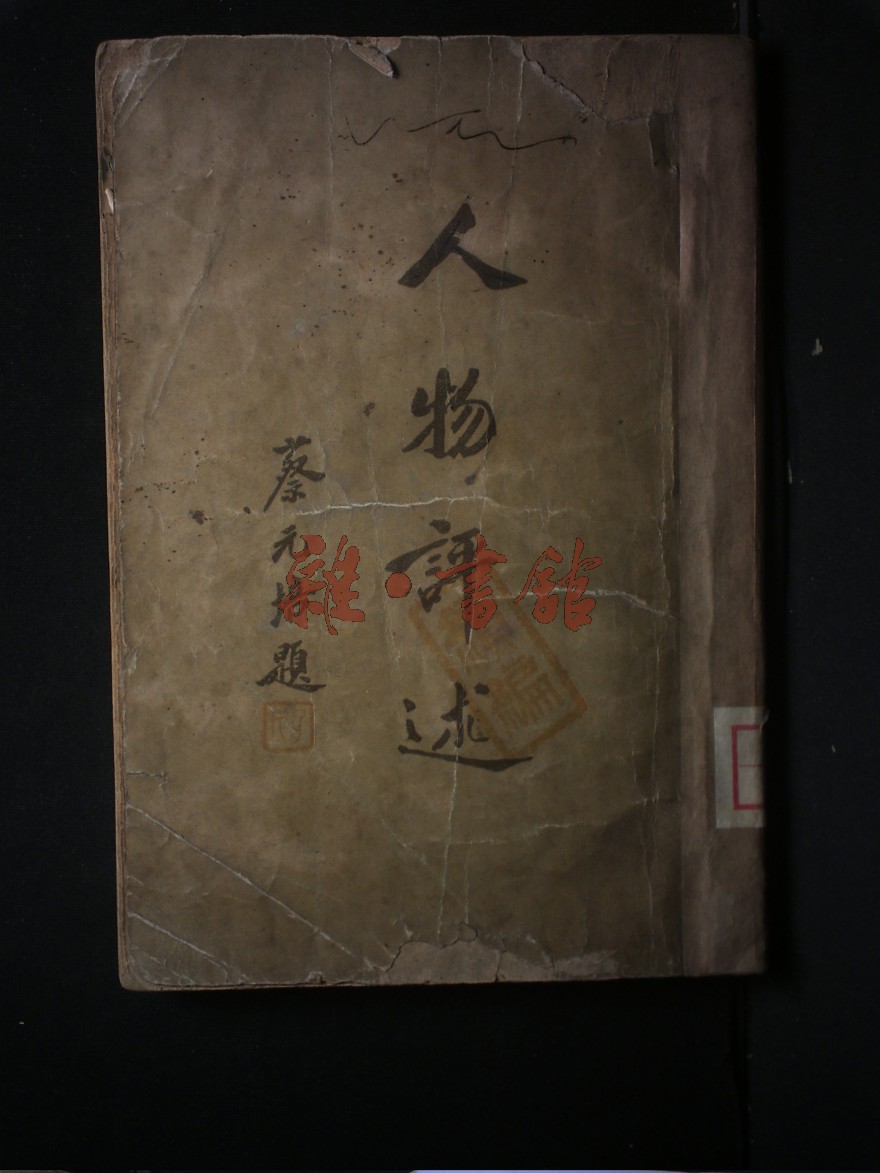 人物評述
蔡元培題
雜·書館